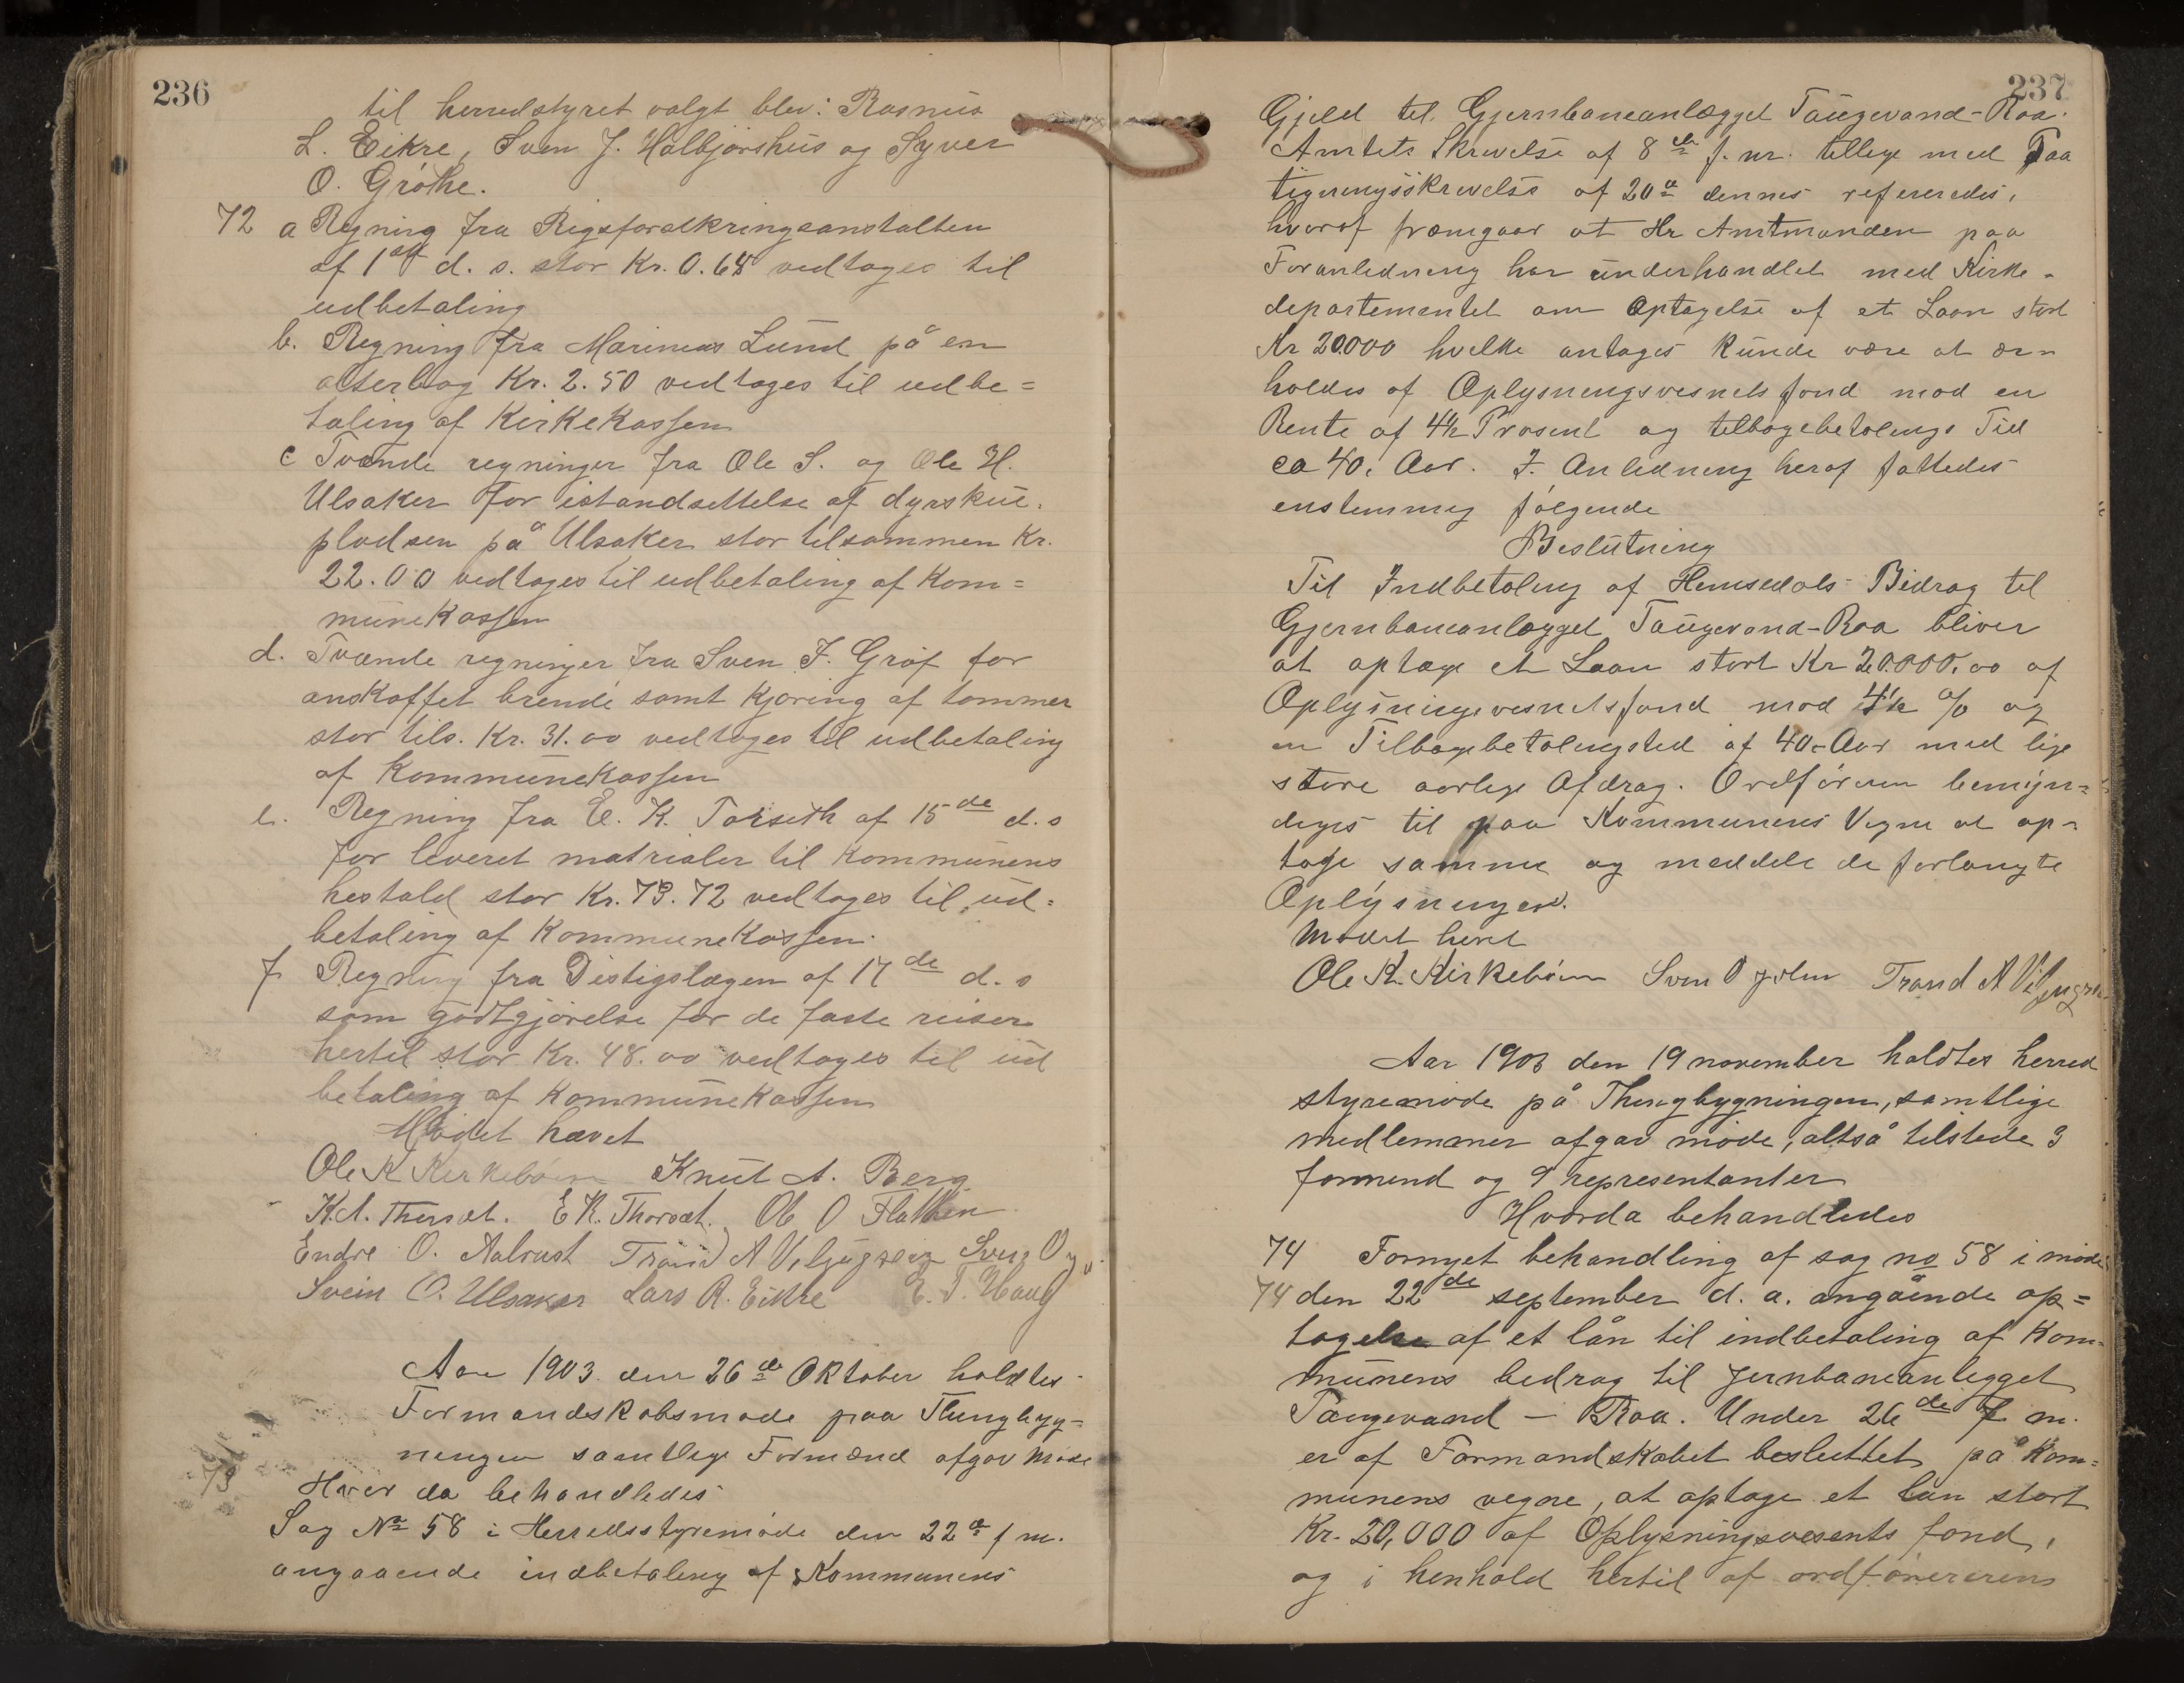 236
til herredstyret valgt blev: Rasmus
L. Eikre, Sven J. Halbjørshus og Syver
O. Grøthe.
72 a Regning fra Rigsforsikringsanstalten
af 1ste d. s. stor Kr. 0.68 vedtages til
udbetaling
b. Regning fra Marinus Lund på en
alterbog Kr. 2.50 vedtages til udbe=
taling af Kirkekassen
c Tvende regninger fra Ole S. og Ole H.
Ulsaker for istandsettelse af dyrskue.
pladsen på Ulsaker stor tilsammen Kr.
22.00 vedtages til udbetaling af Kom=
munekassen
d. Tvænde regninger fra Sven J. Grøf for
anskaffet brende samt kjøring af tømmer
stor tils. Kr. 31.00 vedtages til udbetaling
af Kommunekassen
e. Regning fra E. K. Torseth af 15de d. s
for leveret matrialer til kommunens
hestald stor Kr. 73.72 vedtages til ud=
betaling af Kommunekassen.
f Regning fra Distigslægen af 17de d. s
som godtgjørelse for de faste reiser
hertil stor Kr. 48.00 vedtages til ud
betaling af Kommunekassen
Mødet hævet
Ole K Kirkebøen Knut A. Berg
K. A. Thorset. E K. Thorset. Ole O Flathen
Endre O. Aalrust Trond A Viljugrein Sven O
Svein O. Ulsaker Lars R. Eikre E. T. Haug
Aar 1903 den 26de Oktober holdtes
Formandskabsmøde paa Thingbyg=
ningen samtlige Formænd afgav Møde
73 Hvor da behandledes
Sag No 58 i Herredsstyremøde den 22de f m.
angaaende indbetaling af Kommunens
237
Gjeld til Gjernbaneanlægget Taugevand-Roa.
Amtets Skrivelse af 8de f. m. tillige med Paa
tegningsskrivelse af 20de dennes refereredes,
hvoraf fremgaar at Hr Amtmanden paa
Foranledning har underhandlet med Kirke-
departementet om Optagelse af et Laan stort
Kr 20000 hvilke antages kunde være at er-
holdes af Oplysningsvesnets fond mod en
Rente af 4½ Prosent og tilbagebetalings Tid
ca 40, Aar. I Anledning heraf fattedes
enstemmig følgende
Beslutning
Til Indbetaling af Hemsedals Bidrag til
Gjernbaneanlægget Taugevand-Roa bliver
at optage et Laan stort Kr 20.000.00 af
Oplysningsvesnetsfond mod 4½ % og
en Tilbagebetalingstid af 40-Aar med lige
store aarlige Afdrag. Ordføreren bemyn=
diges til paa Kommunens Vegne at op=
tage samme og meddele de forlangte
Oplysninger.
Mødet hevet
Ole K. Kirkebøen Sven O Trond A Viljugrein
Aar 1903 den 19 november holdtes herred
styremøde på Thingbygningen, samtlige
medlemmer afgav møde, altså tilstede 3
formend og 9 representanter
Hvorda behandledes
74 Fornyet behandling af sag no 58 i møde
74 den 22de september d. a. angående op=
tagelse af et lån til indbetaling af Kom=
munens bedrag til Jernbaneanlegget
Taugevand – Roa. Under 26de f m.
er af Formandskabet besluttet på Kom=
munens vegne, at optage et lån stort
Kr. 20,000 af Oplysningsvesents fond,
og i henhold hertil af ordførererens